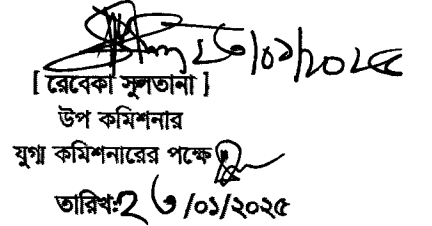 ২৬/০১/২০২৫
[ রেবেকা সুলতানা ]
উপ কমিশনার
যুগ্ম কমিশনারের পক্ষে
তারিখঃ ২৬ /০১/২০২৫